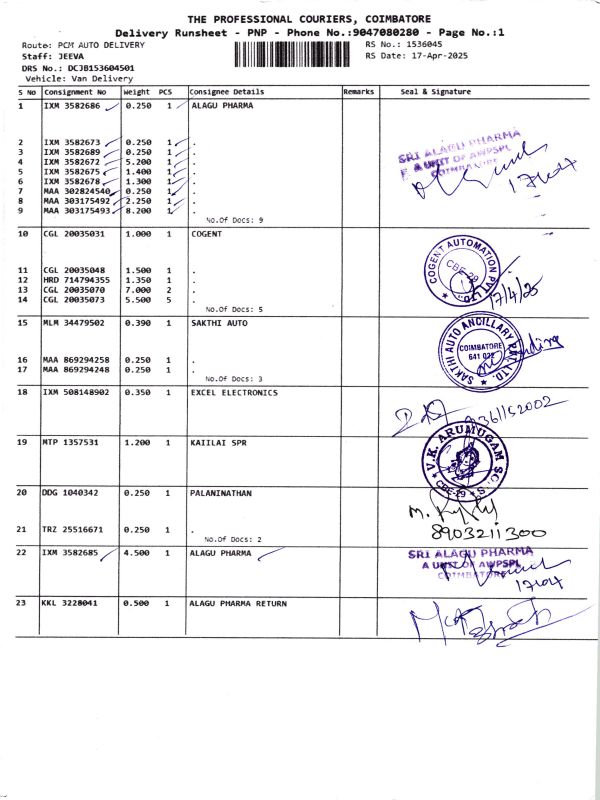 THE PROFESSIONAL COURIERS, COIMBATORE
Delivery Runsheet - PNP - Phone No.:9047080280 - Page No.:1
Route: PCM AUTO DELIVERY RS No.: 1536045
Staff: JEEVA RS Date: 17-Apr-2025
DRS No.: DCJB153604501
Vehicle: Van Delivery
S No Consignment No Weight PCS Consignee Details Remarks Seal & Signature
1 IXM 3582686 0.250 1 ALAGU PHARMA
2 IXM 3582673 0.250 1 .
3 IXM 3582689 0.250 1 .
4 IXM 3582672 5.200 1 .
5 IXM 3582675 1.400 1 .
6 IXM 3582678 1.300 1 .
7 MAA 302824540 0.250 1 .
8 MAA 303175492 2.250 1 .
9 MAA 303175493 8.200 1 .
No.Of Docs: 9
SRI ALAGU PHARMA
A UNIT OF AWPSPL
COIMBATORE
10 CGL 20035031 1.000 1 COGENT
11 CGL 20035048 1.500 1 .
12 HRD 714794355 1.350 1 .
13 CGL 20035070 7.000 2 .
14 CGL 20035073 5.500 5 .
No.Of Docs: 5
COGENT AUTOMATION PVT LTD
CBE-29
17/4/25
15 MLM 34479502 0.390 1 SAKTHI AUTO
16 MAA 869294258 0.250 1 .
17 MAA 869294248 0.250 1 .
No.Of Docs: 3
SAKTHI AUTO ANCILLARY PVT. LTD.
COIMBATORE
641 022
18 IXM 508148902 0.350 1 EXCEL ELECTRONICS
19 MTP 1357531 1.200 1 KAIILAI SPR
V.K. ARUMUGAM
CBE-29
20 DDG 1040342 0.250 1 PALANINATHAN
21 TRZ 25516671 0.250 1 .
No.Of Docs: 2
8903211300
22 IXM 3582685 4.500 1 ALAGU PHARMA
SRI ALAGU PHARMA
A UNIT OF AWPSPL
COIMBATORE
23 KKL 3228041 0.500 1 ALAGU PHARMA RETURN